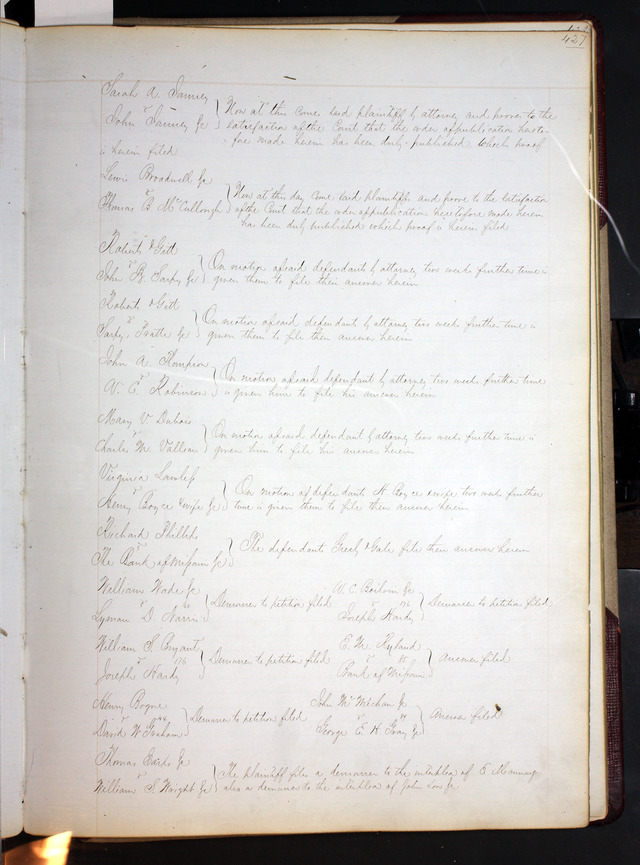 427
Sarah A. Janney
vs
John Janney &c
Now at this Come said plaintiff by attorney and prove to the
satisfaction of the Court that the order of publication hereto-
fore made herein has been duly published which proof
is herein filed
Lewis Broadwell &c
vs
Thomas B McCullough
Now at this day Come said plaintiffs and prove to the satisfaction
of the Court that the order of publication heretofore made herein
has been duly published which proof is herein filed
Roberts & Gitt
vs
John R. &c
On motion of said defendants by attorney two weeks further time is
given them to file their answer herein
Roberts & Gitt
vs
&c
On motion of said defendants by attorney two weeks further time is
given them to file their answer herein
John A. Thompson
vs
W. C Robinson
On motion of said defendant by attorney two weeks further time
is given him to file his answer herein
Mary V Dubois
vs
Charles M Valleau
On motion of said defendant by attorney two weeks further time is
given him to file his answer herein
Virginia Lawless
vs
Henry Boyce & wife &c
On motion of defendants H. Boyce & wife two weeks further
time is given them to file their answer herein
Richard Phillips
vs
The Bank of Missouri &c
The defendants & Gale file their answer herein
William Wade &c
vs
Lyman D
Demurrer to petition filed
W. C. &c
vs
Joseph Hardy
Demurrer to petition filed
William S. Bryant
vs
Joseph Hardy
Demurrer to petition filed
E. M. Ryland
vs
Bank of Missouri
Answer filed
Henry Boyne
vs
David W Graham
Demurrer to petition filed
John McMichan &c
vs
George E. H. Gray &c
Answer filed
Thomas &c
vs
William S. Wright &c
The plaintiff files a demurrer to the interplea of E
also a demurrer to the interplea of John &c